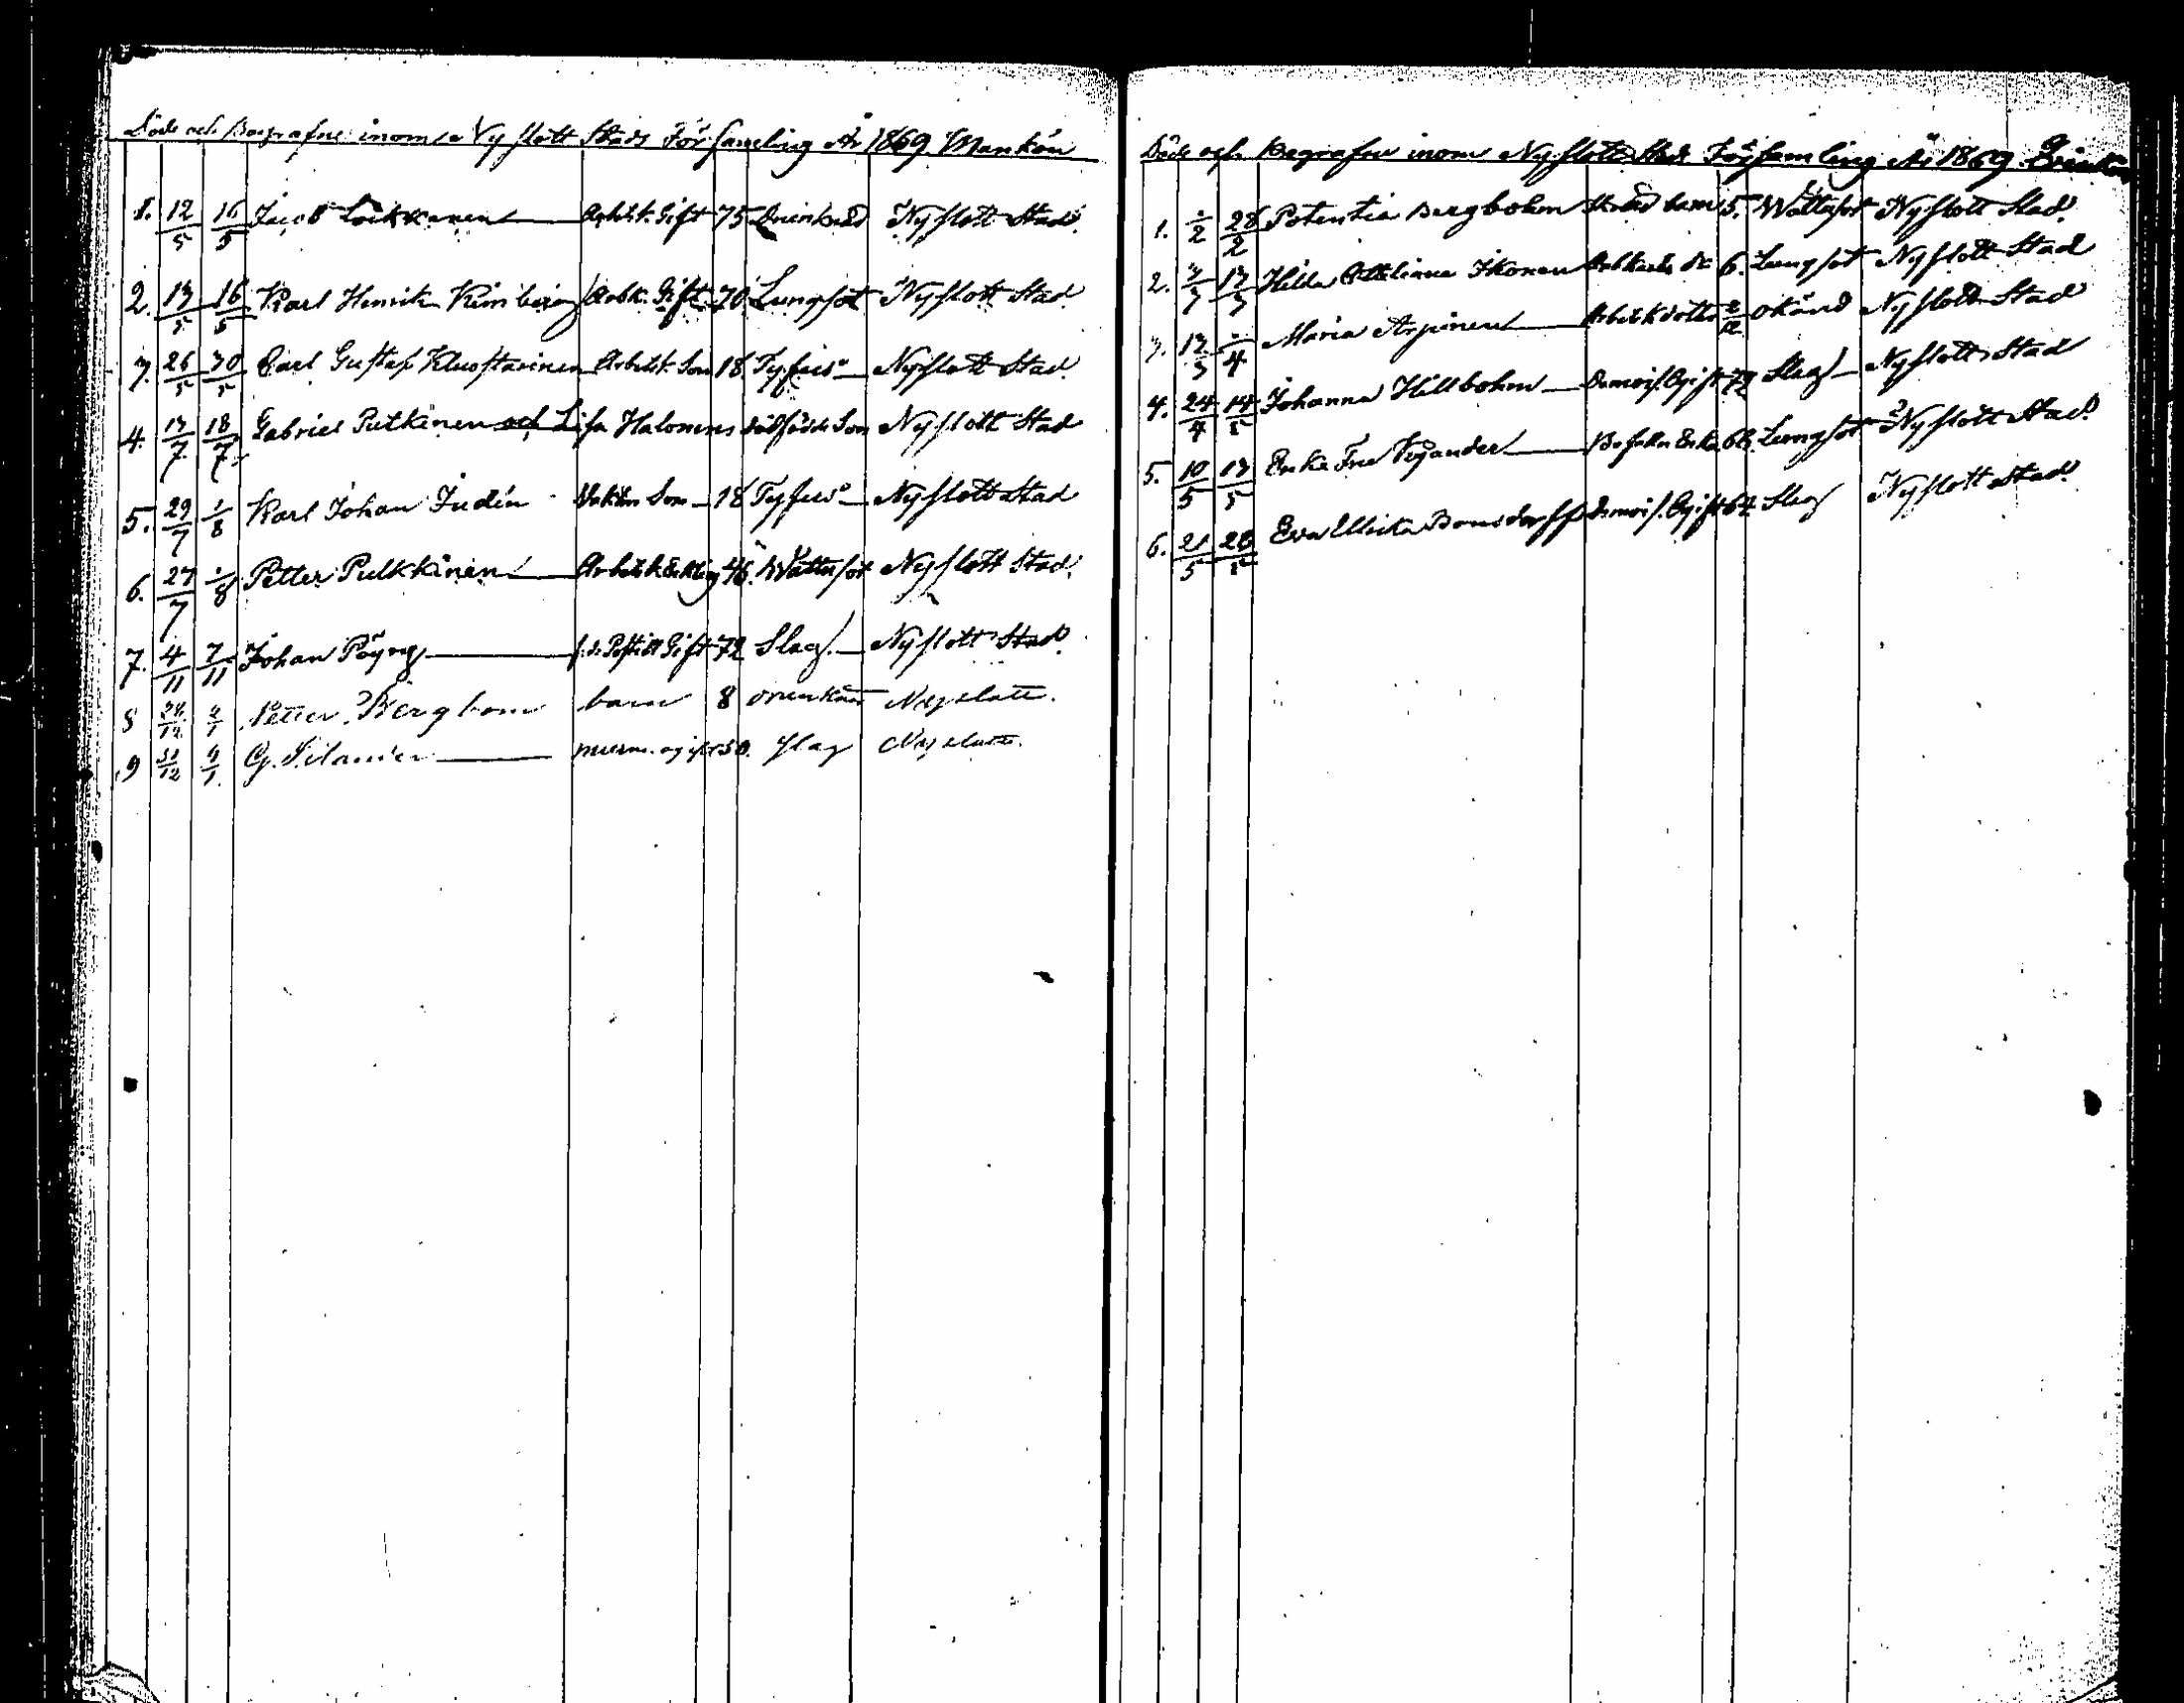 Döde och Begrafne inom Nyslott Stads Församling År 1869. Mankön
1. 12/5 16/5 Jacob Loikkanen Arbetk. Gift 75 Nyslott Stad.
2. 13/5 16/5 Karl Henrik Arbk. Gift 70 Lungsot Nyslott Stad
3. 26/5 30/5 Carl Gustaf Arbetk. Son 18. Tyfus Nyslott Stad.
4. 13/7 18/7 Gabriel Putkinen och Lisa Halonens dödfödde Son Nyslott Stad
5. 29/7 1/8 Karl Johan Judin Son 18 Tyfus Nyslott Stad
6. 27/7 1/8 Petter Pulkkinen Arbetk. Enkling 46. Wattusot Nyslott Stad.
7. 4/11 7/11 Johan Pöyry Gift 72 Slag. Nyslott Stad.
8 Petter Bergbom barn 8 Nyslott.
9 31/12 G. Silander ogift 50. slag Nyslott.
Döde och Begrafne inom Nyslott Stads Församling År 1869. Qvinkön
1. 28/2 Potentia Bergbohm barn 5. Wattusot Nyslott Stad.
2. 3/3 13/3 Hilda Ikonen 6. Lungsot Nyslott Stad
3. 13/3 Maria Arpinen Arbetk dotter 2/12 okänd Nyslott Stad
4. 24/4 Johanna Hillbohm Demois. Ogift 72 Slag Nyslott Stad
5. 10/5 13/5 Enke Fru Enka 66. Lungsot Nyslott Stad.
6. 21/5 28/5 Eva Ulrika Bonsdorff Demois. Ogift 64 Slag Nyslott Stad.